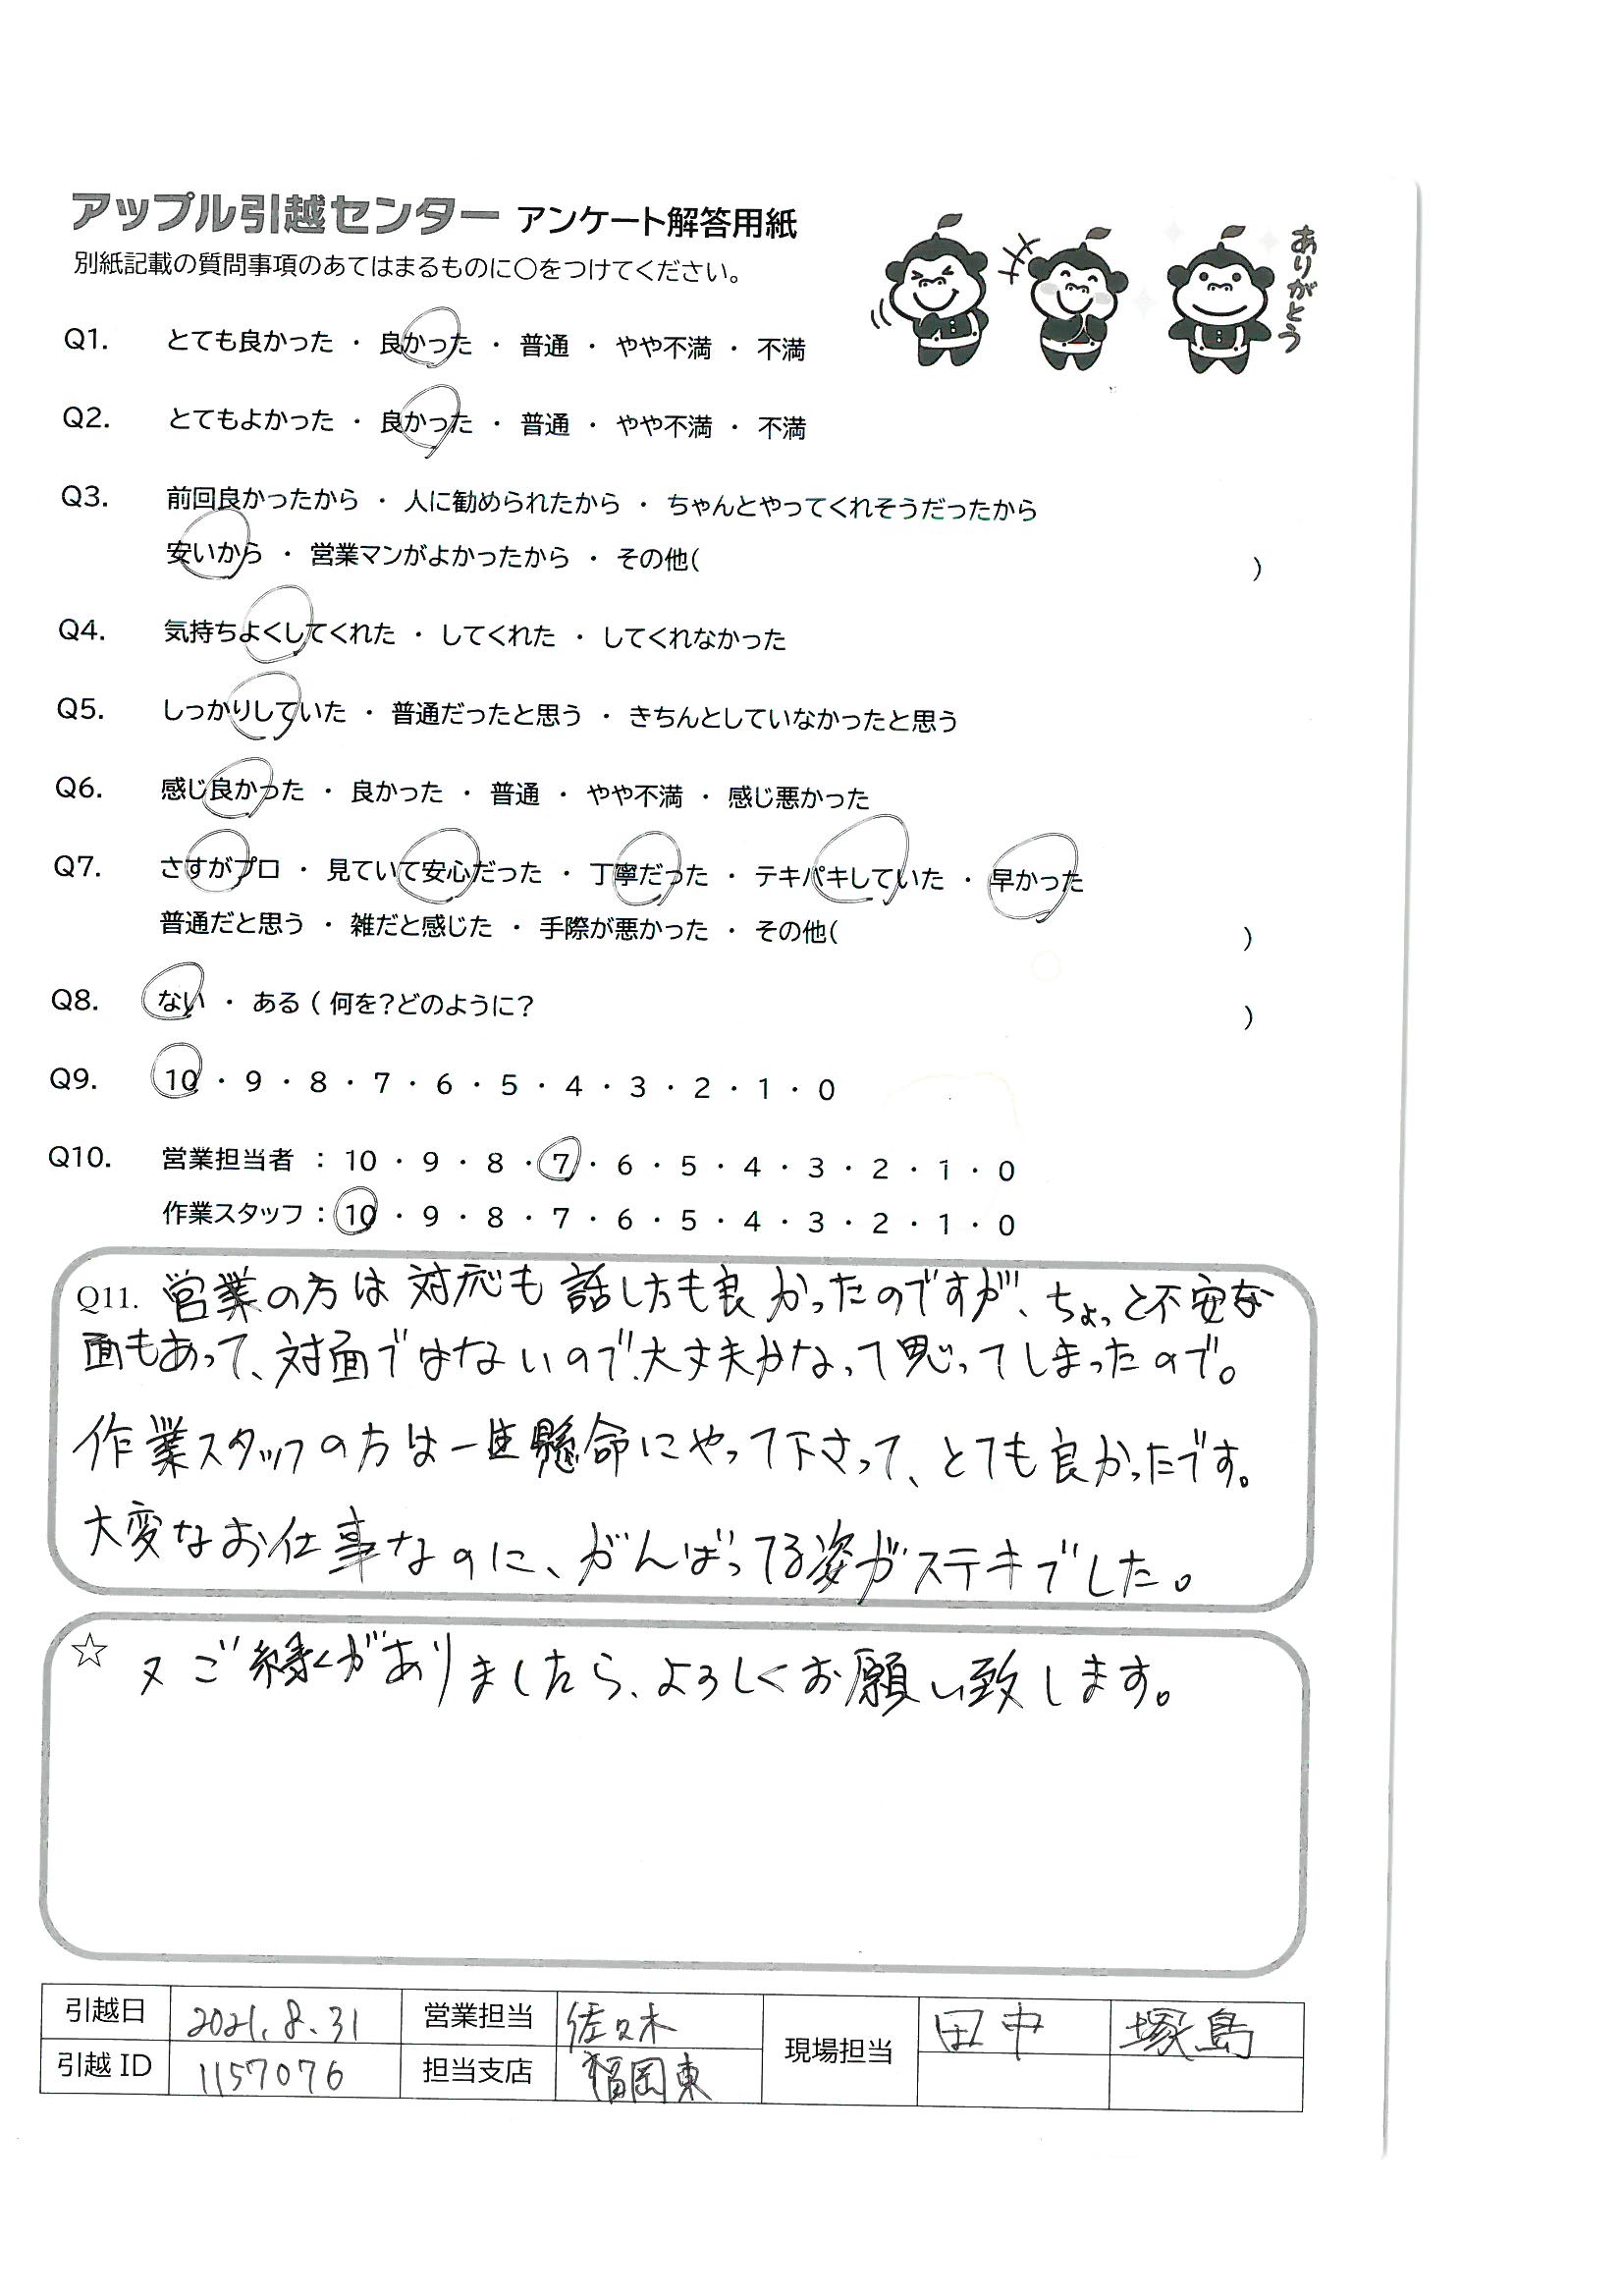 アップル引越センター アンケート解答用紙
別紙記載の質問事項のあてはまるものに○をつけてください。
ありがとう
Q1. とても良かった ・ 良かった ・ 普通 ・ やや不満 ・ 不満
Q2. とてもよかった ・ 良かった ・ 普通 ・ やや不満 ・ 不満
Q3. 前回良かったから ・ 人に勧められたから ・ ちゃんとやってくれそうだったから
安いから ・ 営業マンがよかったから ・ その他( )
Q4. 気持ちよくしてくれた ・ してくれた ・ してくれなかった
Q5. しっかりしていた ・ 普通だったと思う ・ きちんとしていなかったと思う
Q6. 感じ良かった ・ 良かった ・ 普通 ・ やや不満 ・ 感じ悪かった
Q7. さすがプロ ・ 見ていて安心だった ・ 丁寧だった ・ テキパキしていた ・ 早かった
普通だと思う ・ 雑だと感じた ・ 手際が悪かった ・ その他( )
Q8. ない ・ ある ( 何を?どのように? )
Q9. 10 ・ 9 ・ 8 ・ 7 ・ 6 ・ 5 ・ 4 ・ 3 ・ 2 ・ 1 ・ 0
Q10. 営業担当者 : 10 ・ 9 ・ 8 ・ 7 ・ 6 ・ 5 ・ 4 ・ 3 ・ 2 ・ 1 ・ 0
作業スタッフ : 10 ・ 9 ・ 8 ・ 7 ・ 6 ・ 5 ・ 4 ・ 3 ・ 2 ・ 1 ・ 0
Q11. 営業の方は対応も話し方も良かったのですが、ちょっと不安な
面もあって、対面ではないので、大丈夫かなって思ってしまったので。
作業スタッフの方は一生懸命にやって下さって、とても良かったです。
大変なお仕事なのに、がんばってる姿がステキでした。
☆ 又ご縁がありましたら、よろしくお願い致します。
引越日 2021.8.31 営業担当 佐々木 現場担当 田中 塚島
引越 ID 1157076 担当支店 福岡東